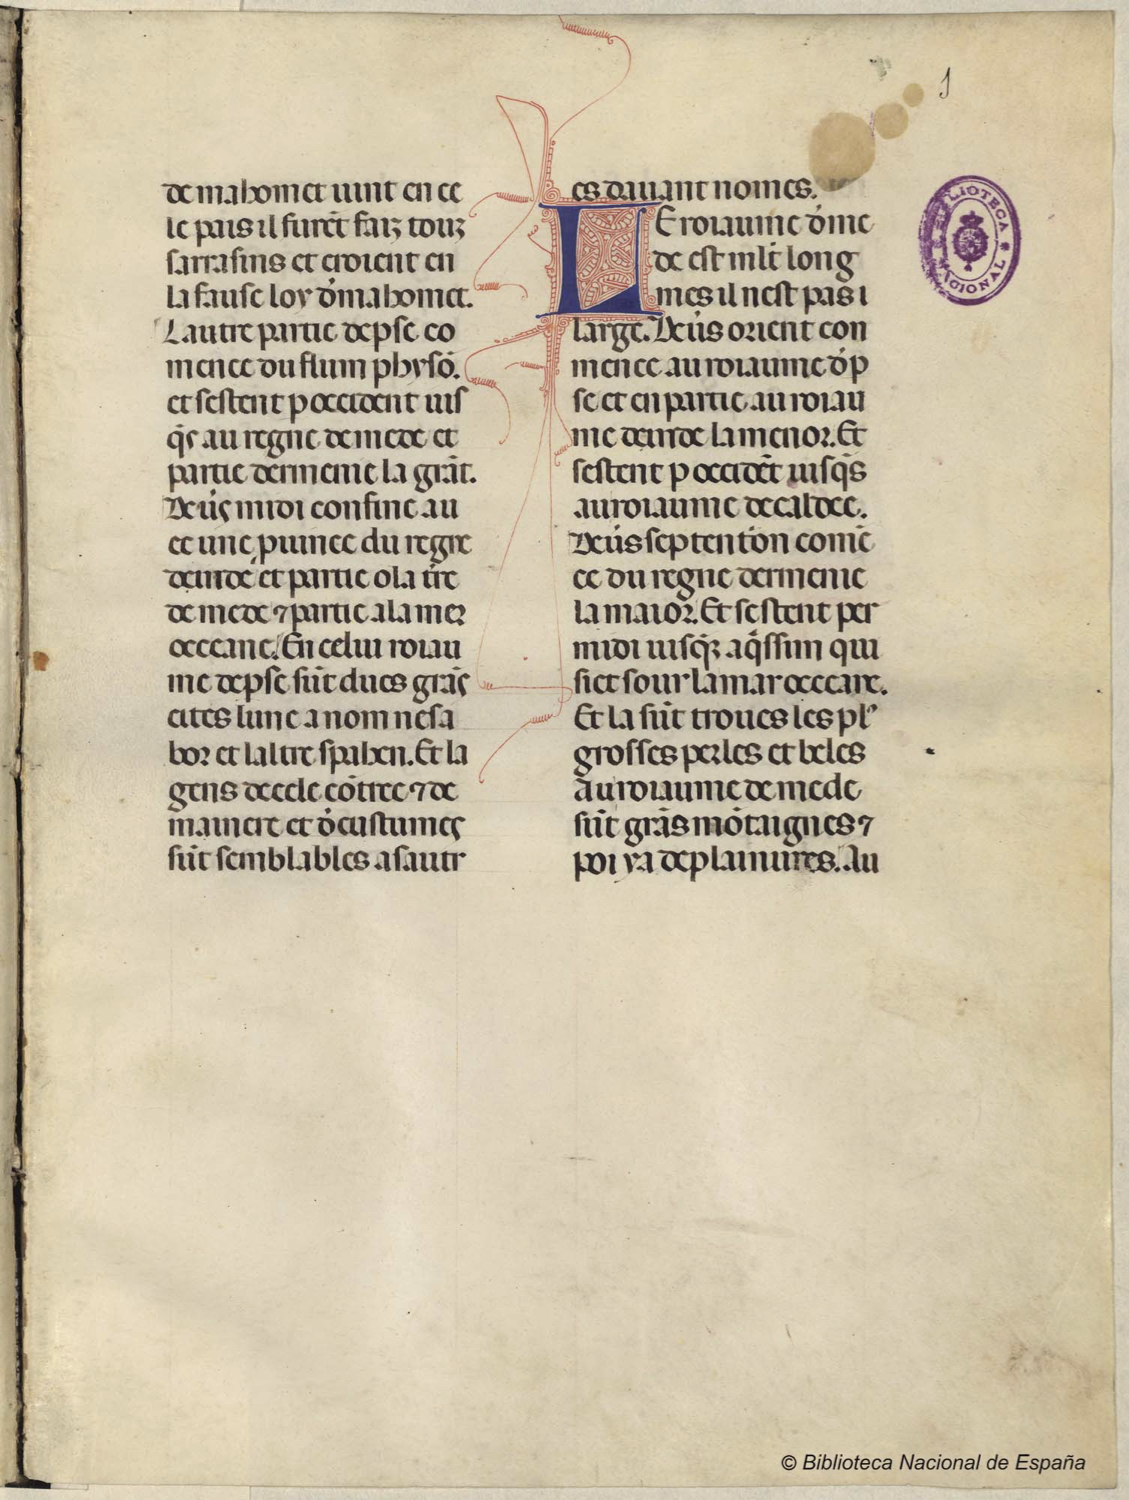 1
de mahomet uint en ce
le pais il furēt faiz touz
sarrasins et croient en
la fause loy d̄ mahomet.
Lautre partie de pse co
mence du flum physō.
et sestent p occident uis
q̄s au regne de mede et
partie dermenie la grāt.
Deūs midi confine au
ce une puince du regne
deurde et partie o la tr̄e
de mede ⁊ partie a la mer
occeane. En celui roiau
me de pse sūt dues grās
cites lune a nom nesa
bor et laltre spahen. Et la
gens de cele cōtree ⁊ de
maniere et d̄ custumes
sūt semblables a sautr
es dauant nomes.
LE roiaume d̄ me
de est mlt̄ long
mes il nest pas i
large. Deūs orient con
mence au roiaume d̄ p
se et en partie au roiau
me deurde la menor. Et
sestent p occidēt iusq̄s
au roiaume de caldee.
Deūs septentōn comē
ce du regne dermenie
la maior. Et sestent per
midi iusq̄s aq̄ssun qui
siet sour la mar occeane.
Et la sūt troues les plꝰ
grosses perles et beles
Au roiaume de mede
sūt grās mōtaignes ⁊
poi ya de plainures. Au
BIBLIOTECA NACIONAL
© Biblioteca Nacional de España